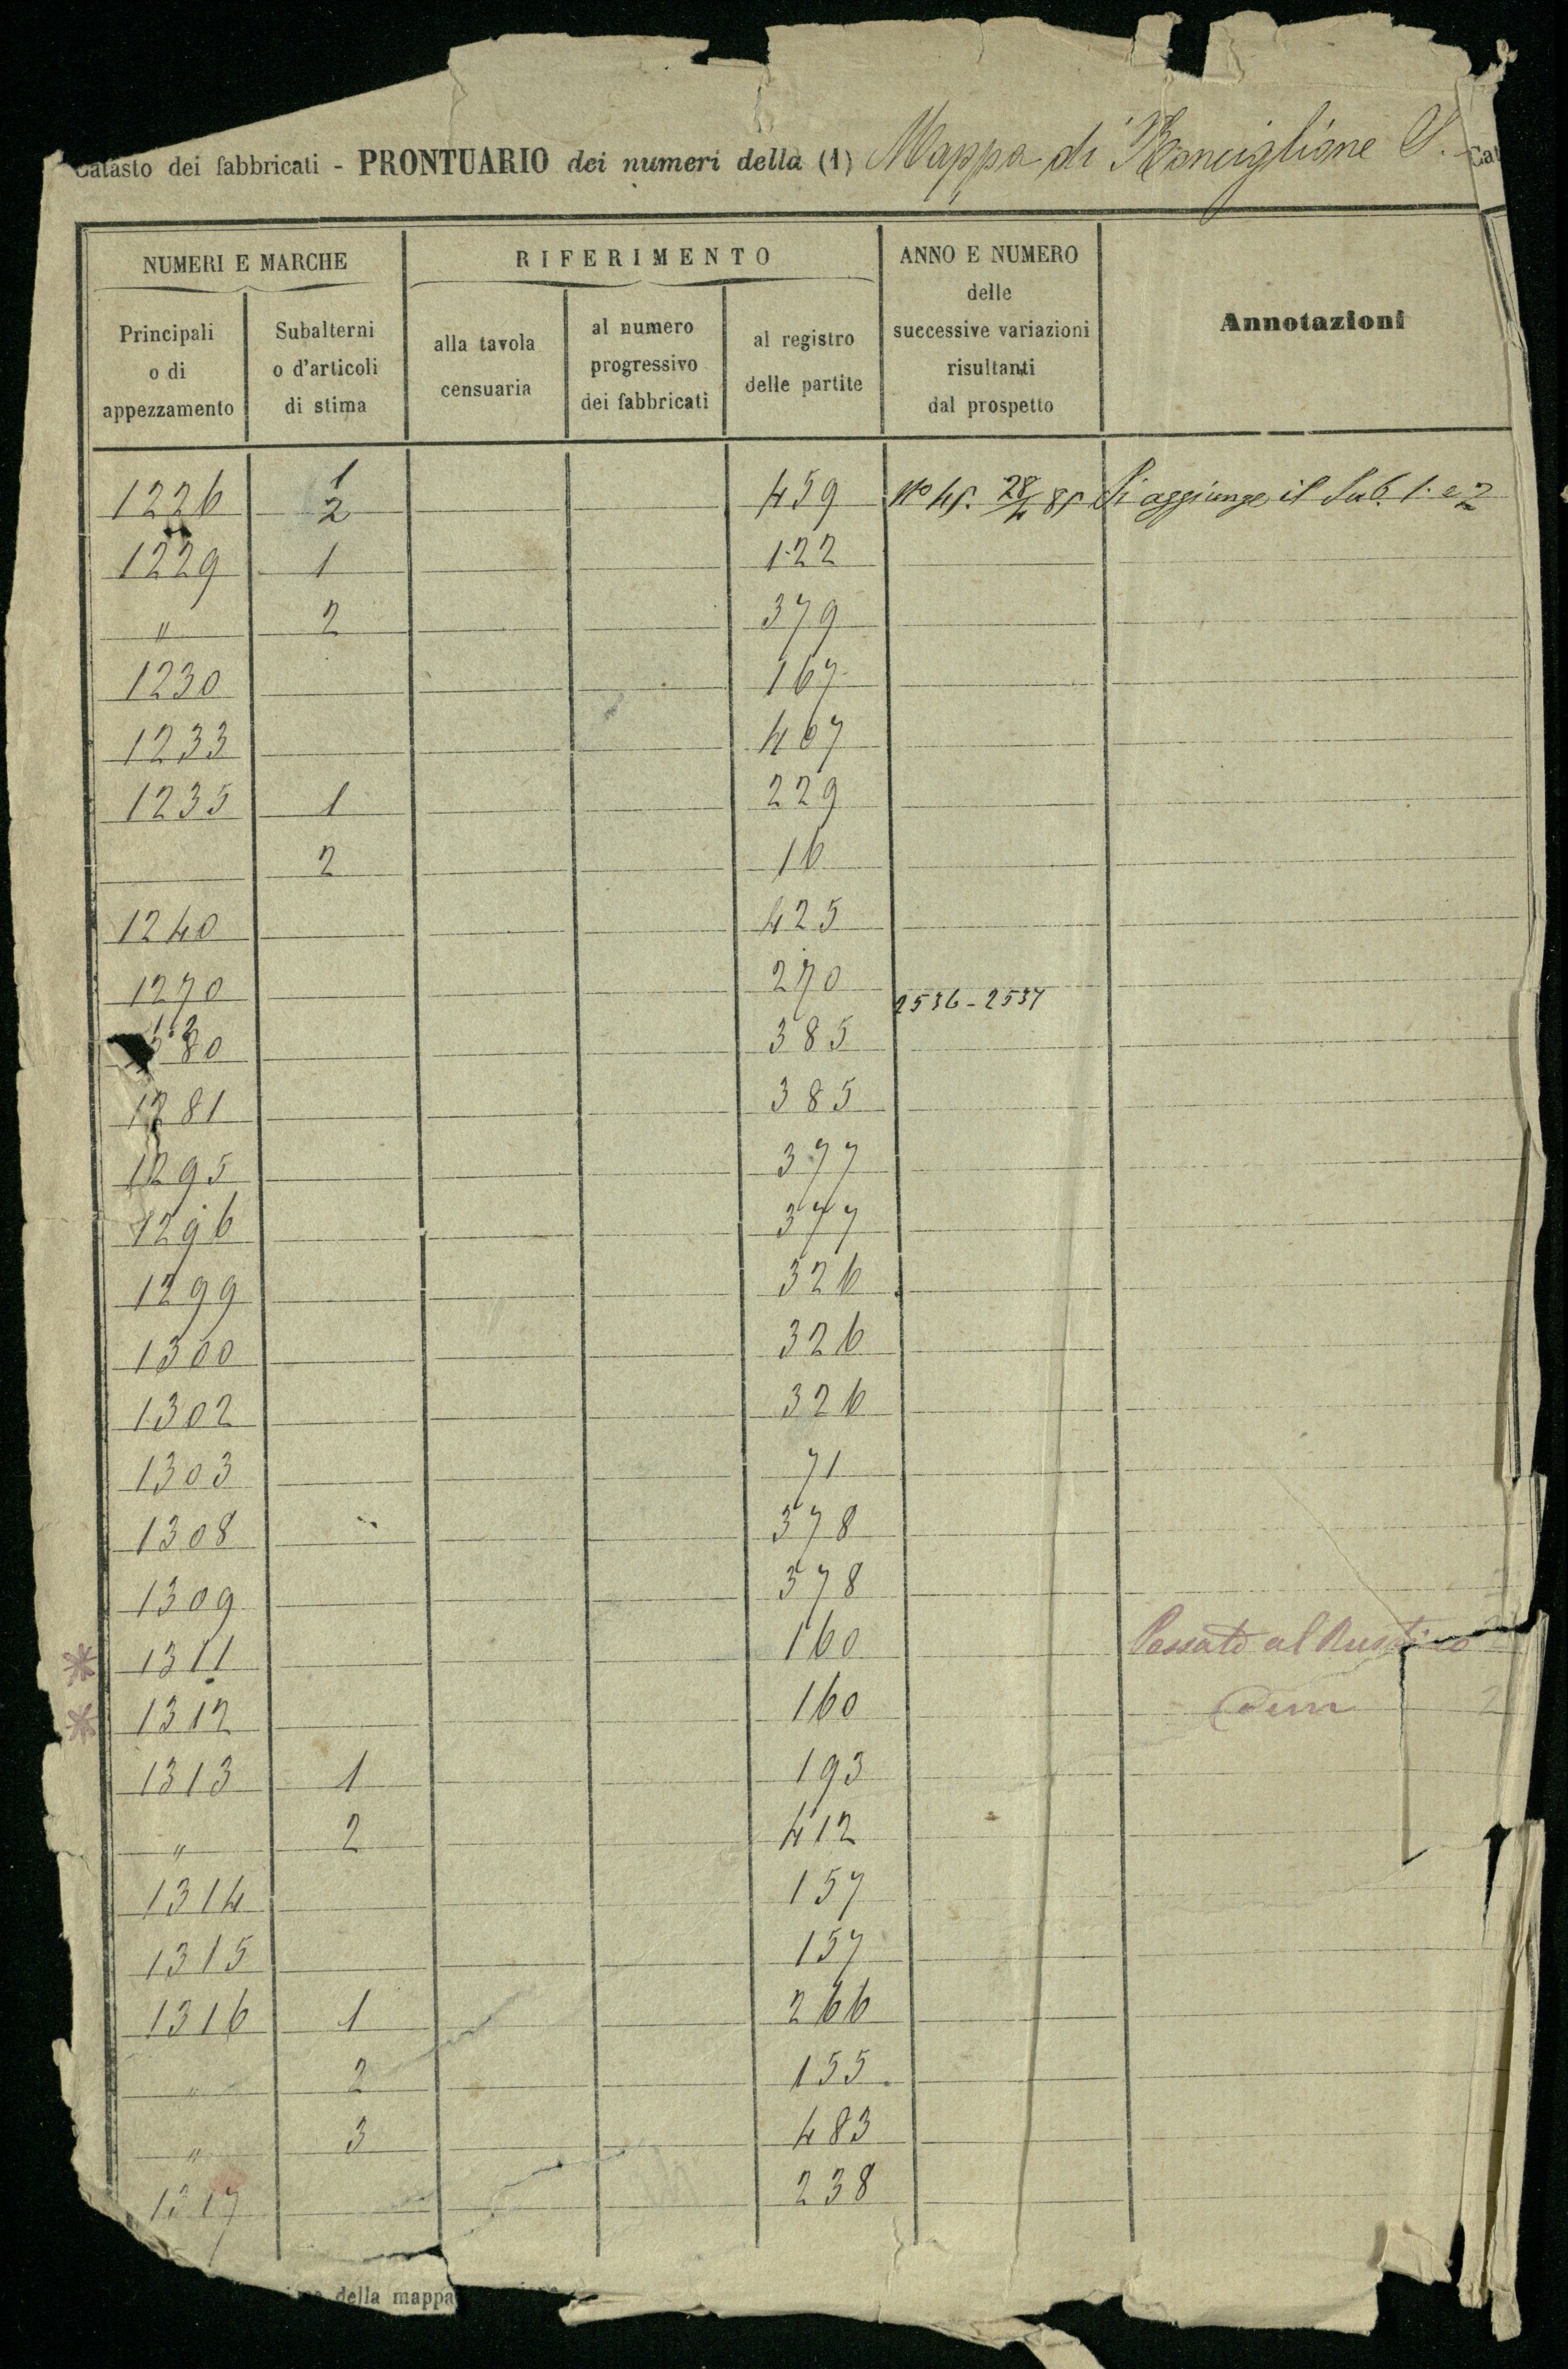 Catasto dei fabbricati - PRONTUARIO dei numeri della (1) Mappa di Ronciglione S.
Cat
NUMERI E MARCHE
RIFERIMENTO
ANNO E NUMERO
delle
successive variazioni
risultanti
dal prospetto
Annotazioni
Principali
o di
appezzamento
Subalterni
o d'articoli
di stima
alla tavola
censuaria
al numero
progressivo
dei fabbricati
al registro
delle partite
1226 1 2 459 Nº 45. 28/4 85 Si aggiunge il Sub. 1. e 2
1229 1 122
" 2 379
1230 167
1233 467
1235 1 229
2 16
1240 425
1270 270 2536-2537
1280 385
1281 385
1295 377
1296 377
1299 326
1300 326
1302 326
1303 71
1308 378
1309 378
* 1311 160 Passato al Rustico
* 1312 160 2
1313 1 193
" 2 412
1314 157
1315 157
1316 1 266
" 2 155
" 3 483
1317 238
della mappa